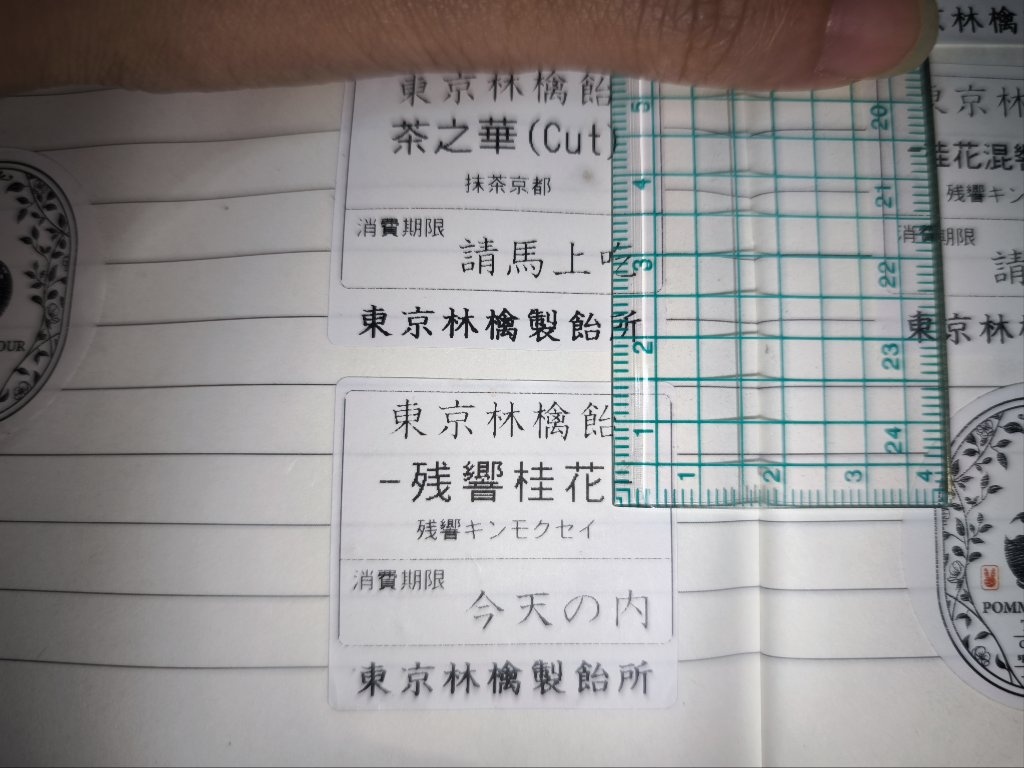 東京林檎飴
茶之華(Cut)
抹茶京都
消費期限
請馬上吃
東京林檎製飴所
東京林檎飴
-残響桂花
残響キンモクセイ
消費期限
今天の内
東京林檎製飴所
京林檎
東京林
桂花混響
残響キン
消費期限
請
東京林
OUR
POMM
5
4
3
2
1
20
21
22
23
24
1
2
3
4